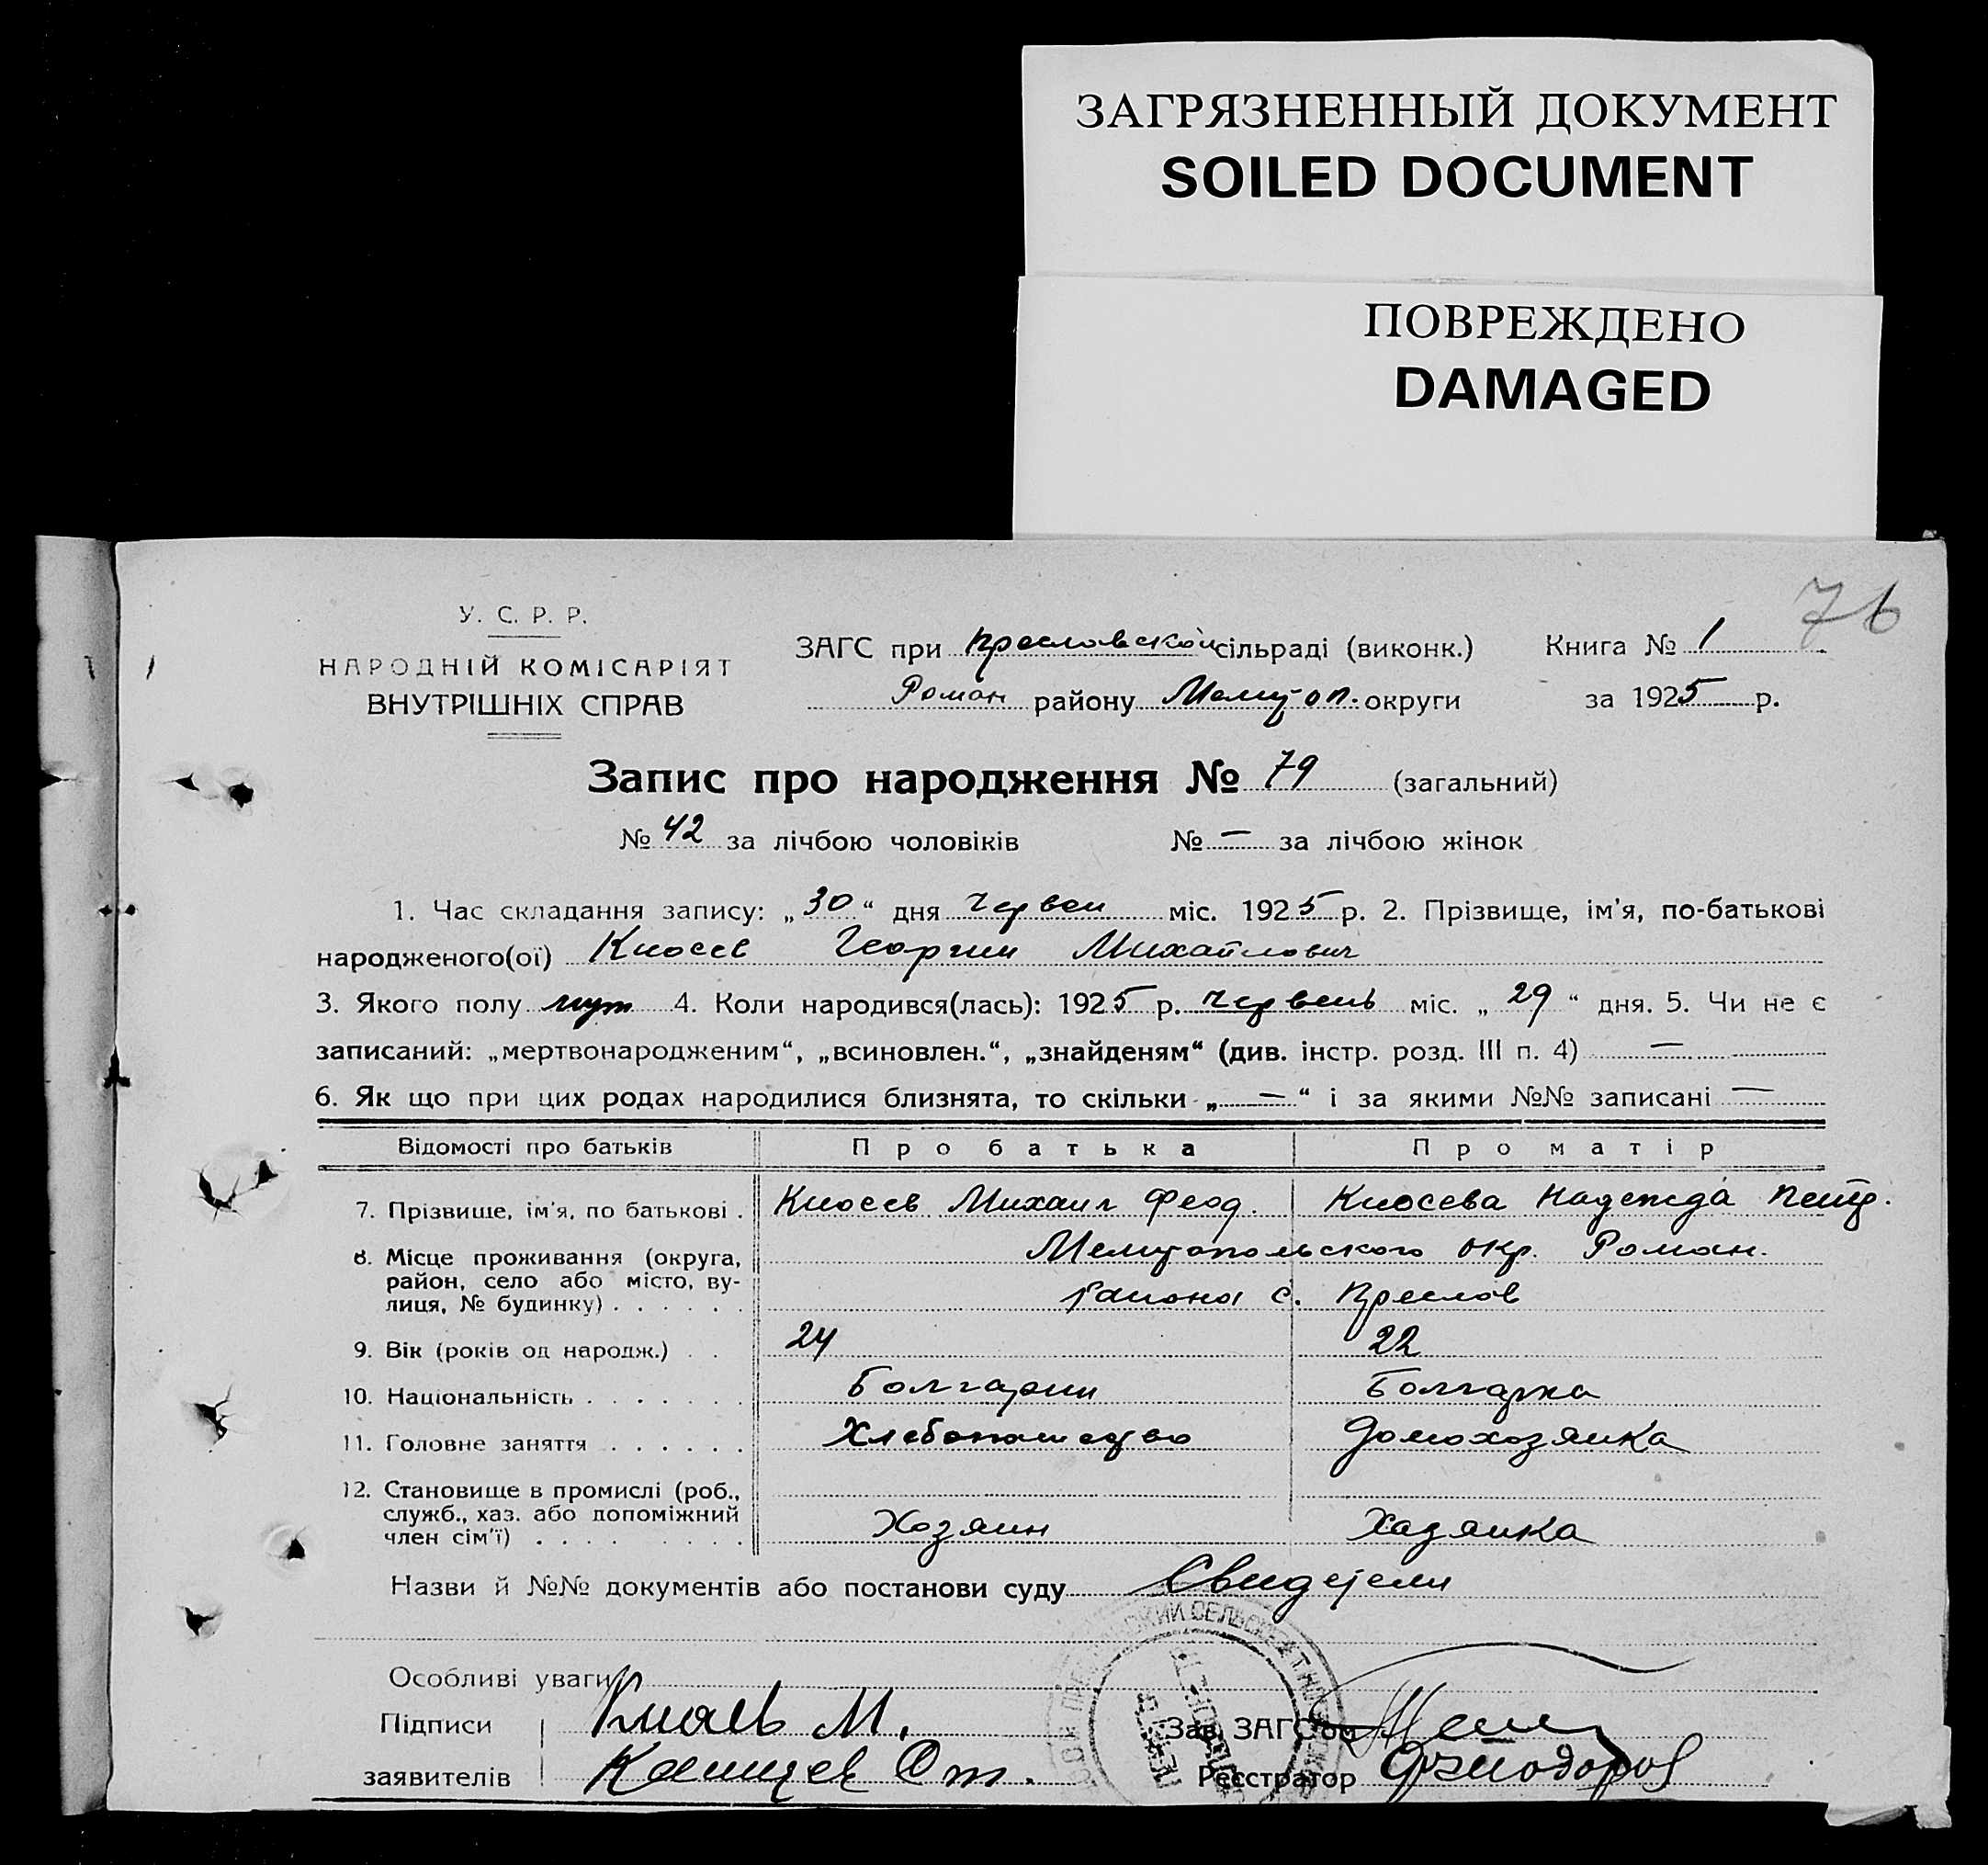 ЗАГРЯЗНЕННЫЙ ДОКУМЕНТ
SOILED DOCUMENT
ПОВРЕЖДЕНО
DAMAGED
76
У. С. Р. Р.
НАРОДНІЙ КОМІСАРІЯТ
ВНУТРІШНІХ СПРАВ
ЗАГС при Преславской сільраді (виконк.) Книга № 1
Роман району Мелитоп. округи за 1925 р.
Запис про народження № 79 (загальний)
№ 42 за лічбою чоловіків № — за лічбою жінок
1. Час складання запису: „30“ дня Червен міс. 1925 р. 2. Прізвище, ім'я, по-батькові
народженого(ої) Киосев Георгии Михайлович
3. Якого полу муж 4. Коли народився(лась): 1925 р. Червень міс. „29“ дня. 5. Чи не є
записаний: „мертвонародженим“, „всиновлен.“, „знайденям“ (див. інстр. розд. III п. 4) —
6. Як що при цих родах народилися близнята, то скільки „—“ і за якими №№ записані —
Відомості про батьків Про батька Про матір
7. Прізвище, ім'я, по батькові . Киосев Михаил Феод. Киосева Надежда Петр.
8. Місце проживання (округа, Мелитопольского окр. Роман.
район, село або місто, ву-
лиця, № будинку) . . . . . . района с. Преслов
9. Вік (років од народж.) . . 24 22
10. Національність . . . . . . . Болгарин Болгарка
11. Головне заняття . . . . . . Хлебопашество Домохозяика
12. Становище в промислі (роб.,
служб., хаз. або допоміжний
член сім'ї) . . . . . . . . . Хозяин Хазяика
Назви й №№ документів або постанови суду Свидетели
Особливі уваги
Підписи Киосев М. Зав. ЗАГС'ом
заявителів От. Реєстратор